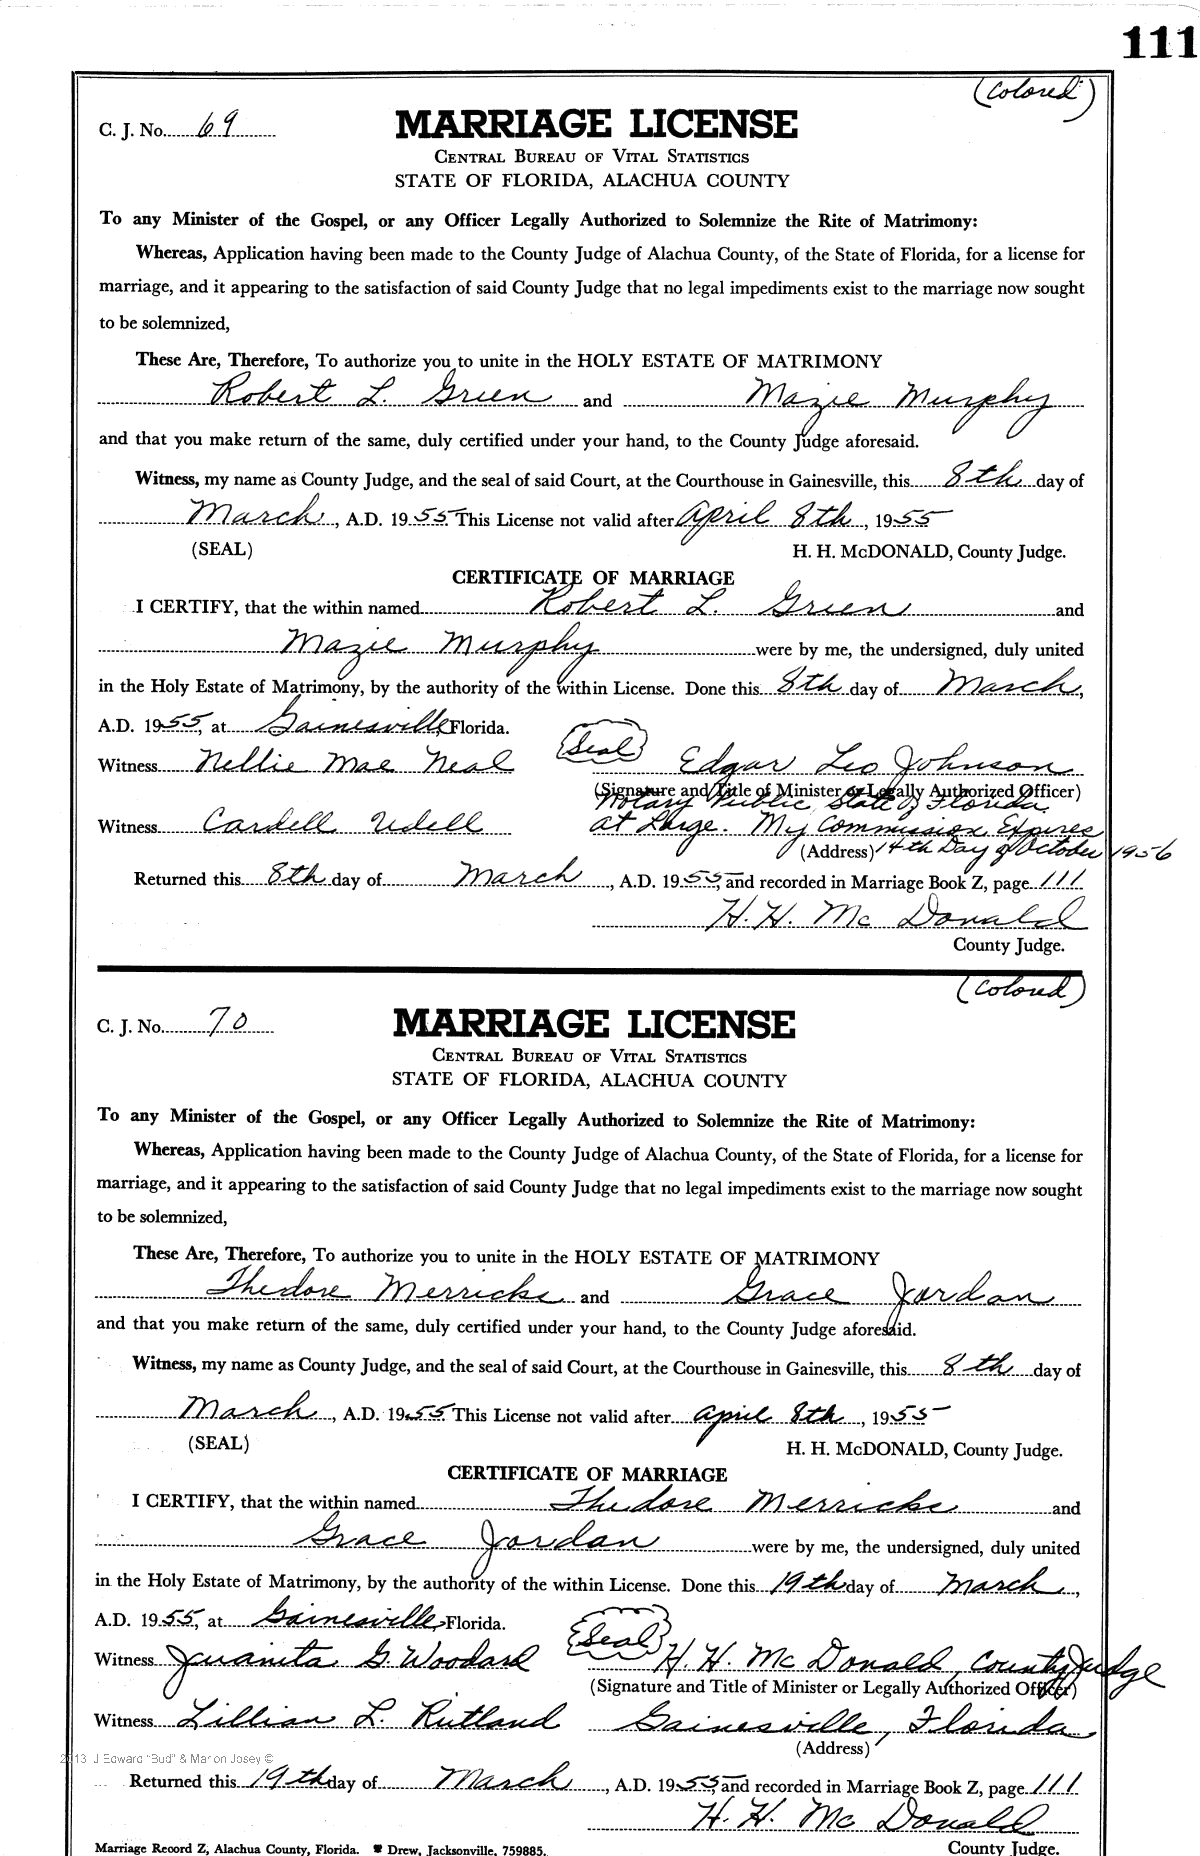 111
(Colored)
C. J. No. 69
MARRIAGE LICENSE
CENTRAL BUREAU OF VITAL STATISTICS
STATE OF FLORIDA, ALACHUA COUNTY
To any Minister of the Gospel, or any Officer Legally Authorized to Solemnize the Rite of Matrimony:
Whereas, Application having been made to the County Judge of Alachua County, of the State of Florida, for a license for
marriage, and it appearing to the satisfaction of said County Judge that no legal impediments exist to the marriage now sought
to be solemnized,
These Are, Therefore, To authorize you to unite in the HOLY ESTATE OF MATRIMONY
Robert L. Green and Mazie Murphy
and that you make return of the same, duly certified under your hand, to the County Judge aforesaid.
Witness, my name as County Judge, and the seal of said Court, at the Courthouse in Gainesville, this 8th day of
March, A.D. 1955 This License not valid after April 8th, 1955
(SEAL) H. H. McDONALD, County Judge.
CERTIFICATE OF MARRIAGE
I CERTIFY, that the within named Robert L. Green and
Mazie Murphy were by me, the undersigned, duly united
in the Holy Estate of Matrimony, by the authority of the within License. Done this 8th day of March,
A.D. 1955, at Gainesville, Florida.
(Seal)
Witness Nellie Mae Neal Edgar Leo Johnson
(Signature and Title of Minister or Legally Authorized Officer)
Notary Public, State of Florida
Witness Cardell Udell at Large. My Commission Expires
(Address) 14th Day of October 1956
Returned this 8th day of March, A.D. 1955, and recorded in Marriage Book Z, page 111
H. H. Mc Donald
County Judge.
(Colored)
C. J. No. 70
MARRIAGE LICENSE
CENTRAL BUREAU OF VITAL STATISTICS
STATE OF FLORIDA, ALACHUA COUNTY
To any Minister of the Gospel, or any Officer Legally Authorized to Solemnize the Rite of Matrimony:
Whereas, Application having been made to the County Judge of Alachua County, of the State of Florida, for a license for
marriage, and it appearing to the satisfaction of said County Judge that no legal impediments exist to the marriage now sought
to be solemnized,
These Are, Therefore, To authorize you to unite in the HOLY ESTATE OF MATRIMONY
Thedore Merricks and Grace Jordan
and that you make return of the same, duly certified under your hand, to the County Judge aforesaid.
Witness, my name as County Judge, and the seal of said Court, at the Courthouse in Gainesville, this 8th day of
March, A.D. 1955 This License not valid after April 8th, 1955
(SEAL) H. H. McDONALD, County Judge.
CERTIFICATE OF MARRIAGE
I CERTIFY, that the within named Thedore Merricks and
Grace Jordan were by me, the undersigned, duly united
in the Holy Estate of Matrimony, by the authority of the within License. Done this 19th day of March,
A.D. 1955, at Gainesville, Florida.
(Seal)
Witness Juanita G. Woodard H. H. Mc Donald, County Judge
(Signature and Title of Minister or Legally Authorized Officer)
Witness Lillian L. Rutland Gainesville, Florida
(Address)
2013 J Edward "Bud" & Marion Josey ©
Returned this 19th day of March, A.D. 1955, and recorded in Marriage Book Z, page 111
H. H. Mc Donald
County Judge.
Marriage Record Z, Alachua County, Florida. Drew, Jacksonville, 759885.